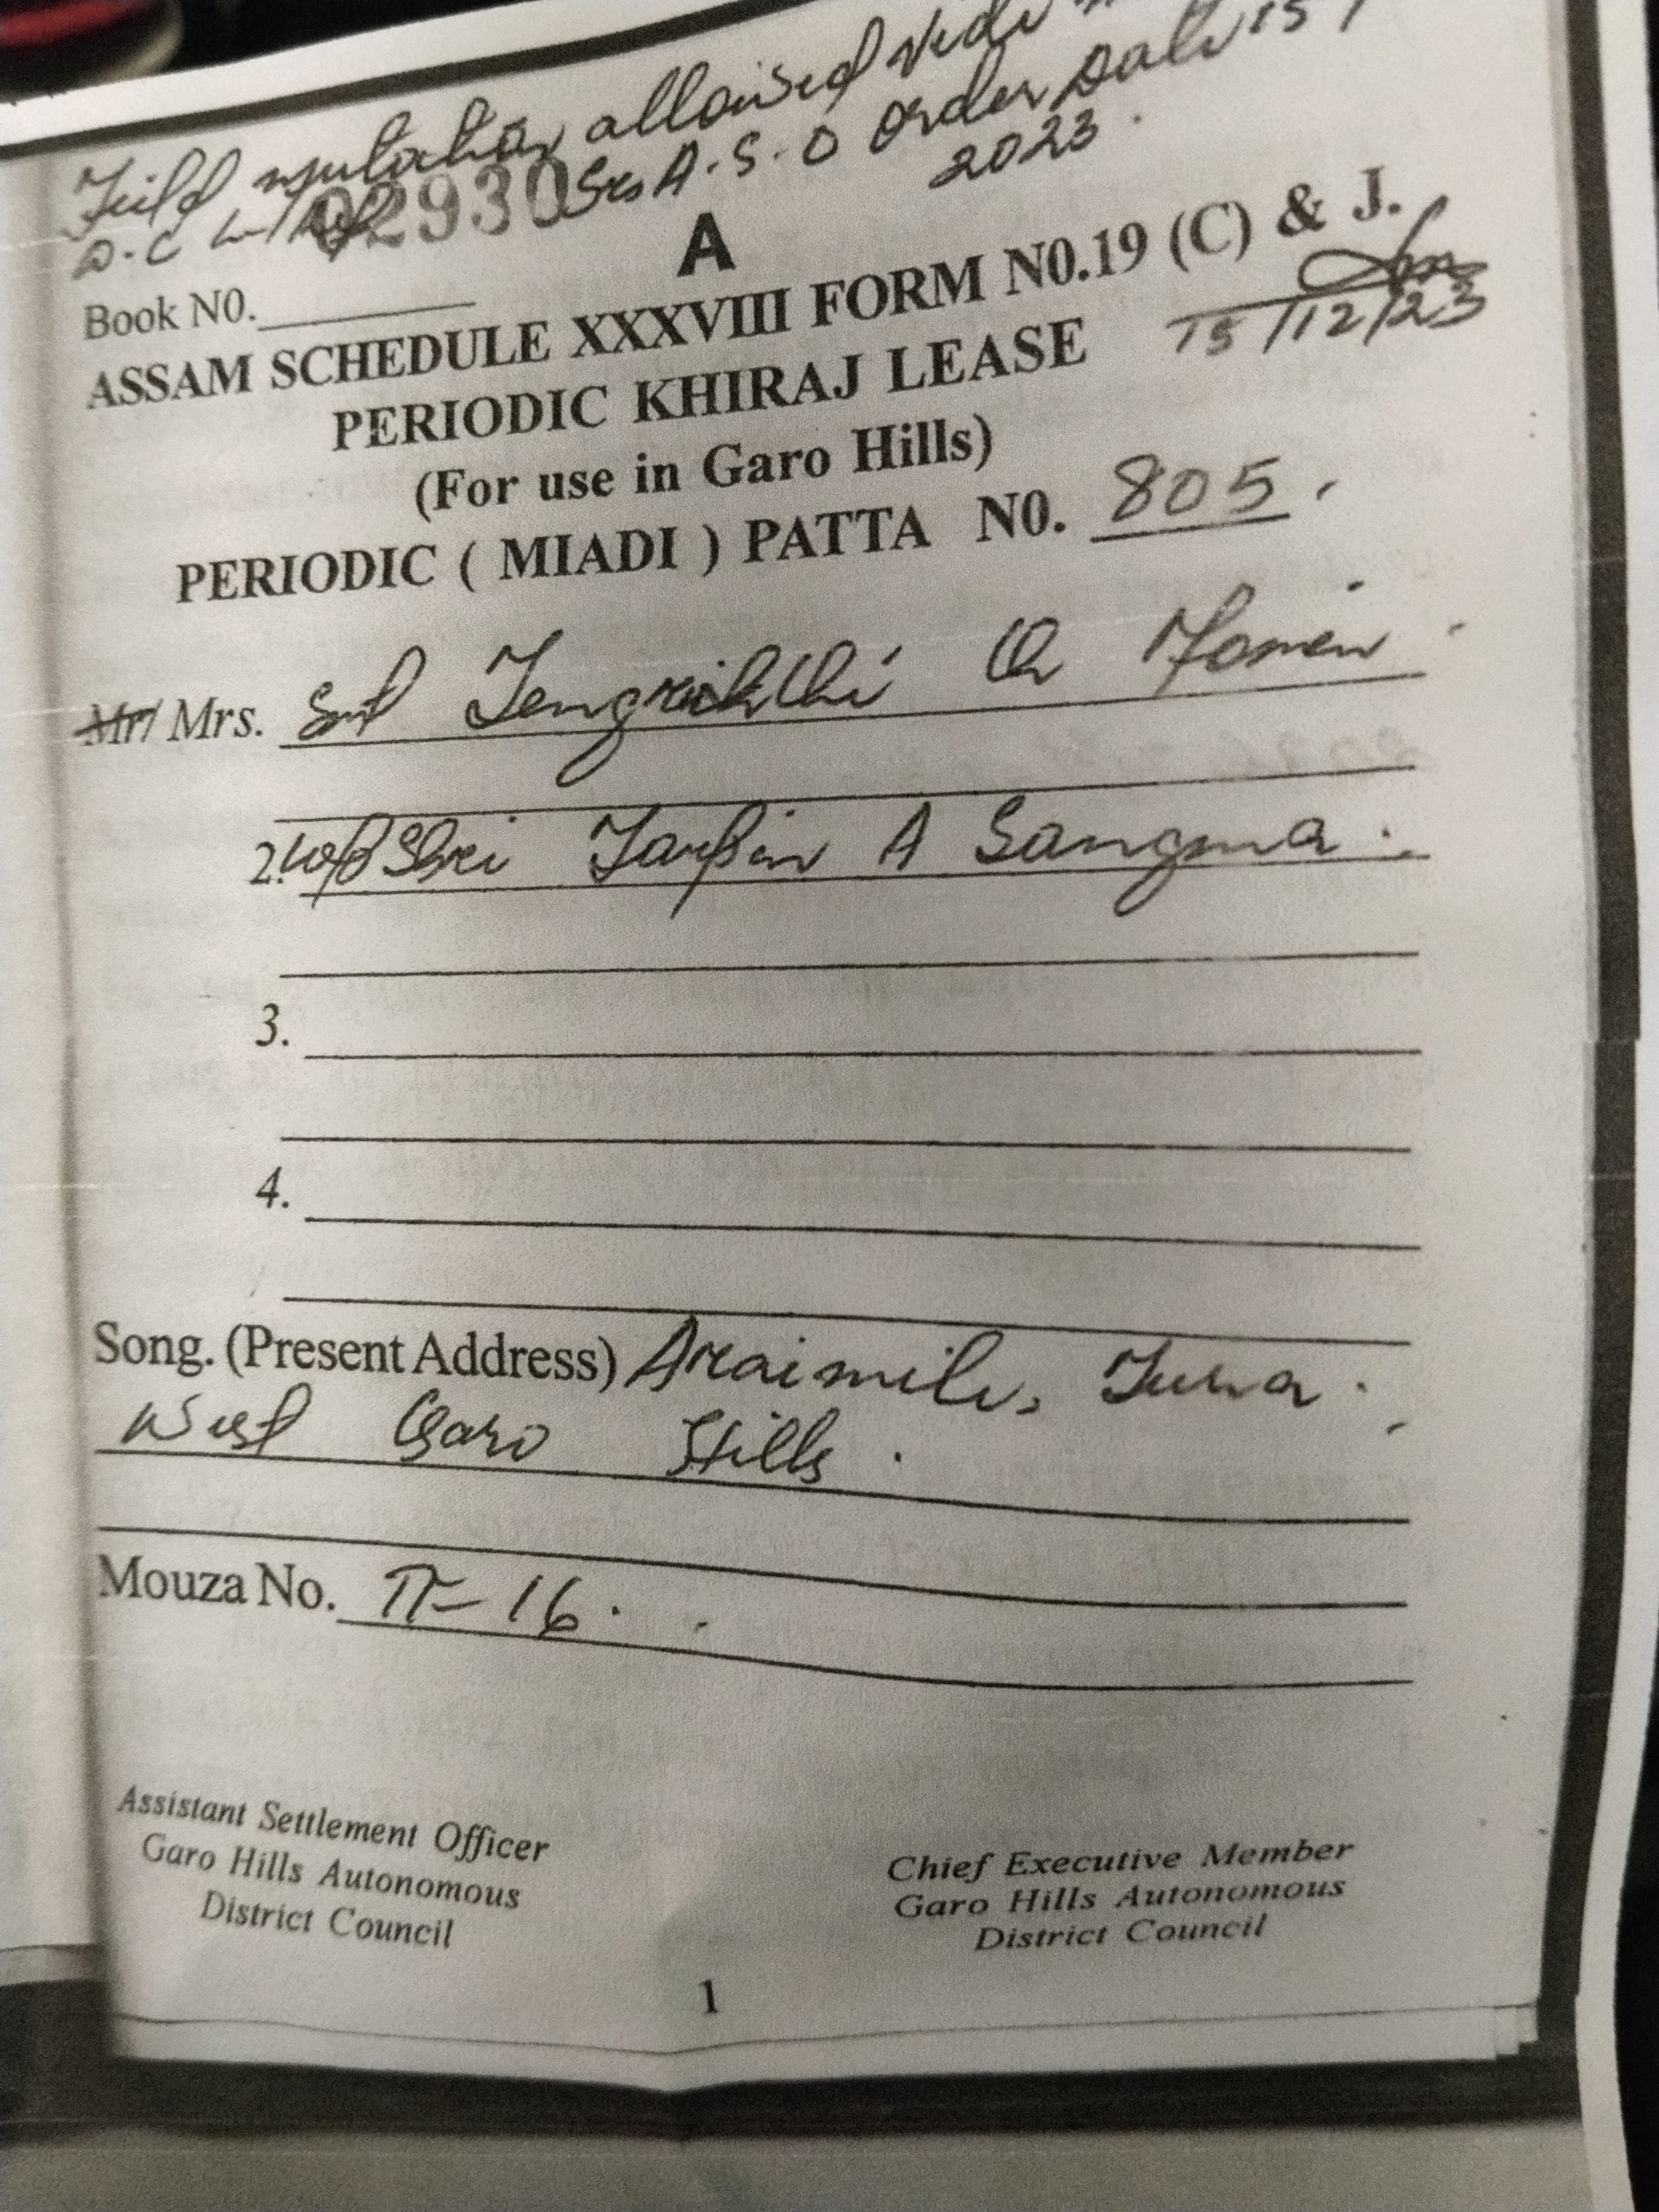 Field mutation allowed vide
D.C 02930 A.S.O Order Date 15/
2023.
A
Book N0.
ASSAM SCHEDULE XXXVIII FORM N0.19 (C) & J.
PERIODIC KHIRAJ LEASE
15/12/23
(For use in Garo Hills)
PERIODIC ( MIADI ) PATTA N0. 805.
Mr/ Mrs. Smt Ch Momin
2. W/o Shri A Sangma.
3.
4.
Song. (Present Address) Araimile, Tura.
West Garo Hills.
Mouza No. II-16.
Assistant Settlement Officer
Garo Hills Autonomous
District Council
Chief Executive Member
Garo Hills Autonomous
District Council
1